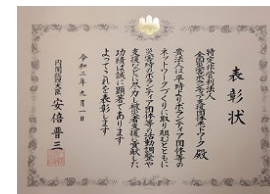 表彰状
特定非営利活動法人
全国災害ボランティア支援団体ネットワーク殿
貴法人は平時よりボランティア団体等の
ネットワークづくりに取り組むとともに
災害時のボランティア団体等の活動調整や
支援などに尽力し被災者支援に貢献した
功績は誠に顕著であります
よってこれを表彰します
令和二年九月一日
内閣総理大臣 安倍晋三